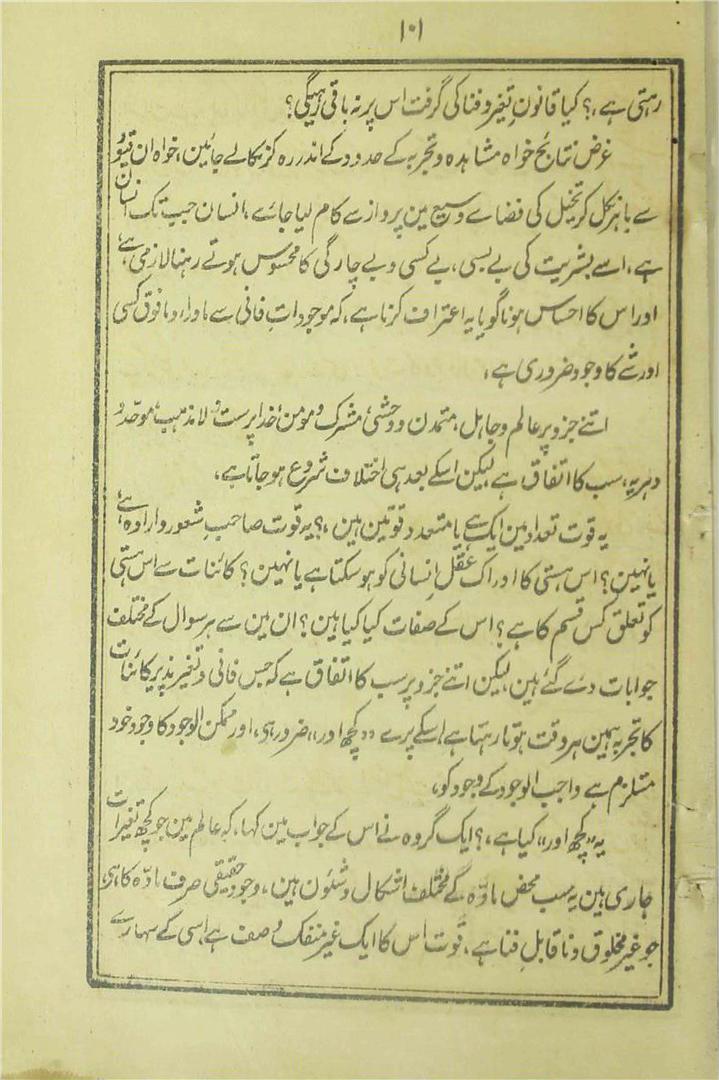 ۱۰۱
رہتی ہے،؟ کیا قانونِ تغیر و فنا کی گرفت اس پر نہ باقی رہیگی؟
غرض نتائج خواہ مشاہدہ و تجربہ کے حدود کے اندر رہ کر نکالے جائین، خواہ ان قیود
سے باہر نکل کر تخیل کی فضاے وسیع مین پرواز سے کام لیا جائے، انسان جب تک انسان
ہے، اسے بشریت کی بے بسی، بے کسی و بے چارگی کا محسوس ہوتے رہنا لازمی ہے،
اور اس کا احساس ہونا گویا یہ اعتراف کرنا ہے، کہ موجوداتِ فانی سے ماوراء و مافوق کسی
اور شے کا وجود ضروری ہے،
اتنے جزو پر عالم و جاہل، متمدن و وحشی، مشرک و مومن، خدا پرست و لا مذہب، موحّد و
دہریہ، سب کا اتفاق ہے لیکن اسکے بعد ہی اختلاف شروع ہو جاتا ہے،
یہ قوت تعداد مین ایک ہے یا متعدد قوتین ہین،؟ یہ قوت صاحبِ شعور و ارادہ ہے
یا نہین؟ اس ہستی کا ادراک عقلِ انسانی کو ہو سکتا ہے یا نہین؟ کائنات سے اس ہستی
کو تعلق کس قسم کا ہے؟ اس کے صفات کیا کیا ہین؟ ان مین سے ہر سوال کے مختلف
جوابات دے گئے ہین لیکن اتنے جزو پر سب کا اتفاق ہے کہ جس فانی و تغیر پذیر کائنات
کا تجربہ ہمین ہر وقت ہوتا رہتا ہے اسکے پرے ”کچھ اور“ ضرور ہی، اور ممکن الوجود کا وجود خود
مستلزم ہے واجب الوجود کے وجود کو،
یہ ”کچھ اور“ کیا ہے،؟ ایک گروہ نے اس کے جواب مین کہا، کہ عالم مین جو کچھ تغیرات
جاری ہین یہ سب محض مادّہ کے مختلف اشکال و شئون ہین، وجود حقیقی صرف مادّہ کا ہی،
جو غیر مخلوق و ناقابلِ فنا ہے، قوت اس کا ایک غیر منفک وصف ہے، اسی کے سہارے